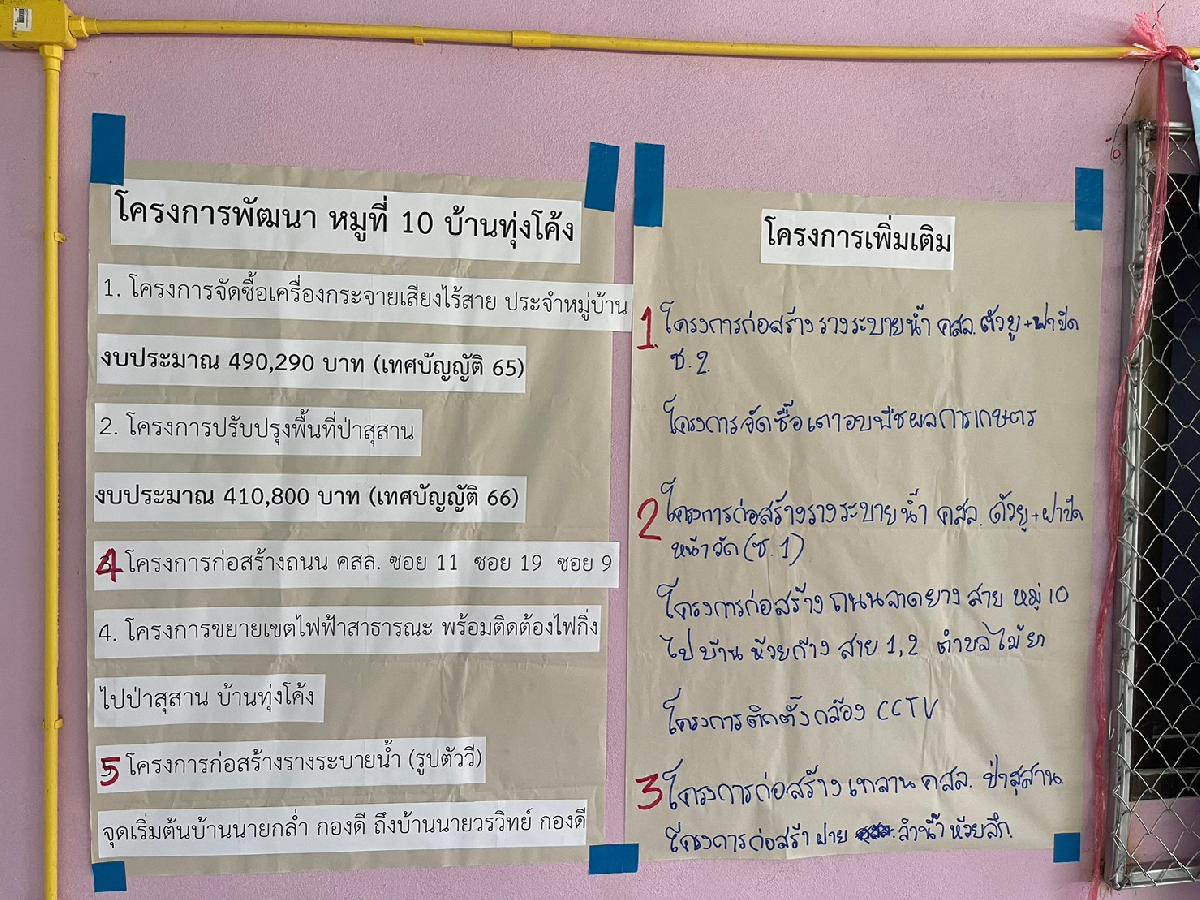 โครงการพัฒนา หมู่ที่ 10 บ้านทุ่งโค้ง
1. โครงการจัดซื้อเครื่องกระจายเสียงไร้สาย ประจำหมู่บ้าน
งบประมาณ 490,290 บาท (เทศบัญญัติ 65)
2. โครงการปรับปรุงพื้นที่ป่าสุสาน
งบประมาณ 410,800 บาท (เทศบัญญัติ 66)
4 โครงการก่อสร้างถนน คสล. ซอย 11 ซอย 19 ซอย 9
4. โครงการขยายเขตไฟฟ้าสาธารณะ พร้อมติดต้องไฟกิ่ง
ไปป่าสุสาน บ้านทุ่งโค้ง
5 โครงการก่อสร้างรางระบายน้ำ (รูปตัววี)
จุดเริ่มต้นบ้านนายกล่ำ กองดี ถึงบ้านนายวรวิทย์ กองดี
โครงการเพิ่มเติม
1. โครงการก่อสร้างรางระบายน้ำ คสล. ตัวยู+ฝาปิด
ซ.2
โครงการจัดซื้อเตาอบพืชผลการเกษตร
2 โครงการก่อสร้างรางระบายน้ำ คสล. ตัวยู+ฝาปิด
หน้าวัด (ซ.1)
โครงการก่อสร้าง ถนนลาดยาง สาย หมู่ 10
ไปบ้าน ห้วยก้าง สาย 1,2 ตำบลไม้ยา
โครงการติดตั้งกล้อง CCTV
3 โครงการก่อสร้าง เทลาน คสล. ป่าสุสาน
โครงการก่อสร้า ฝาย ลำน้ำห้วยสัก